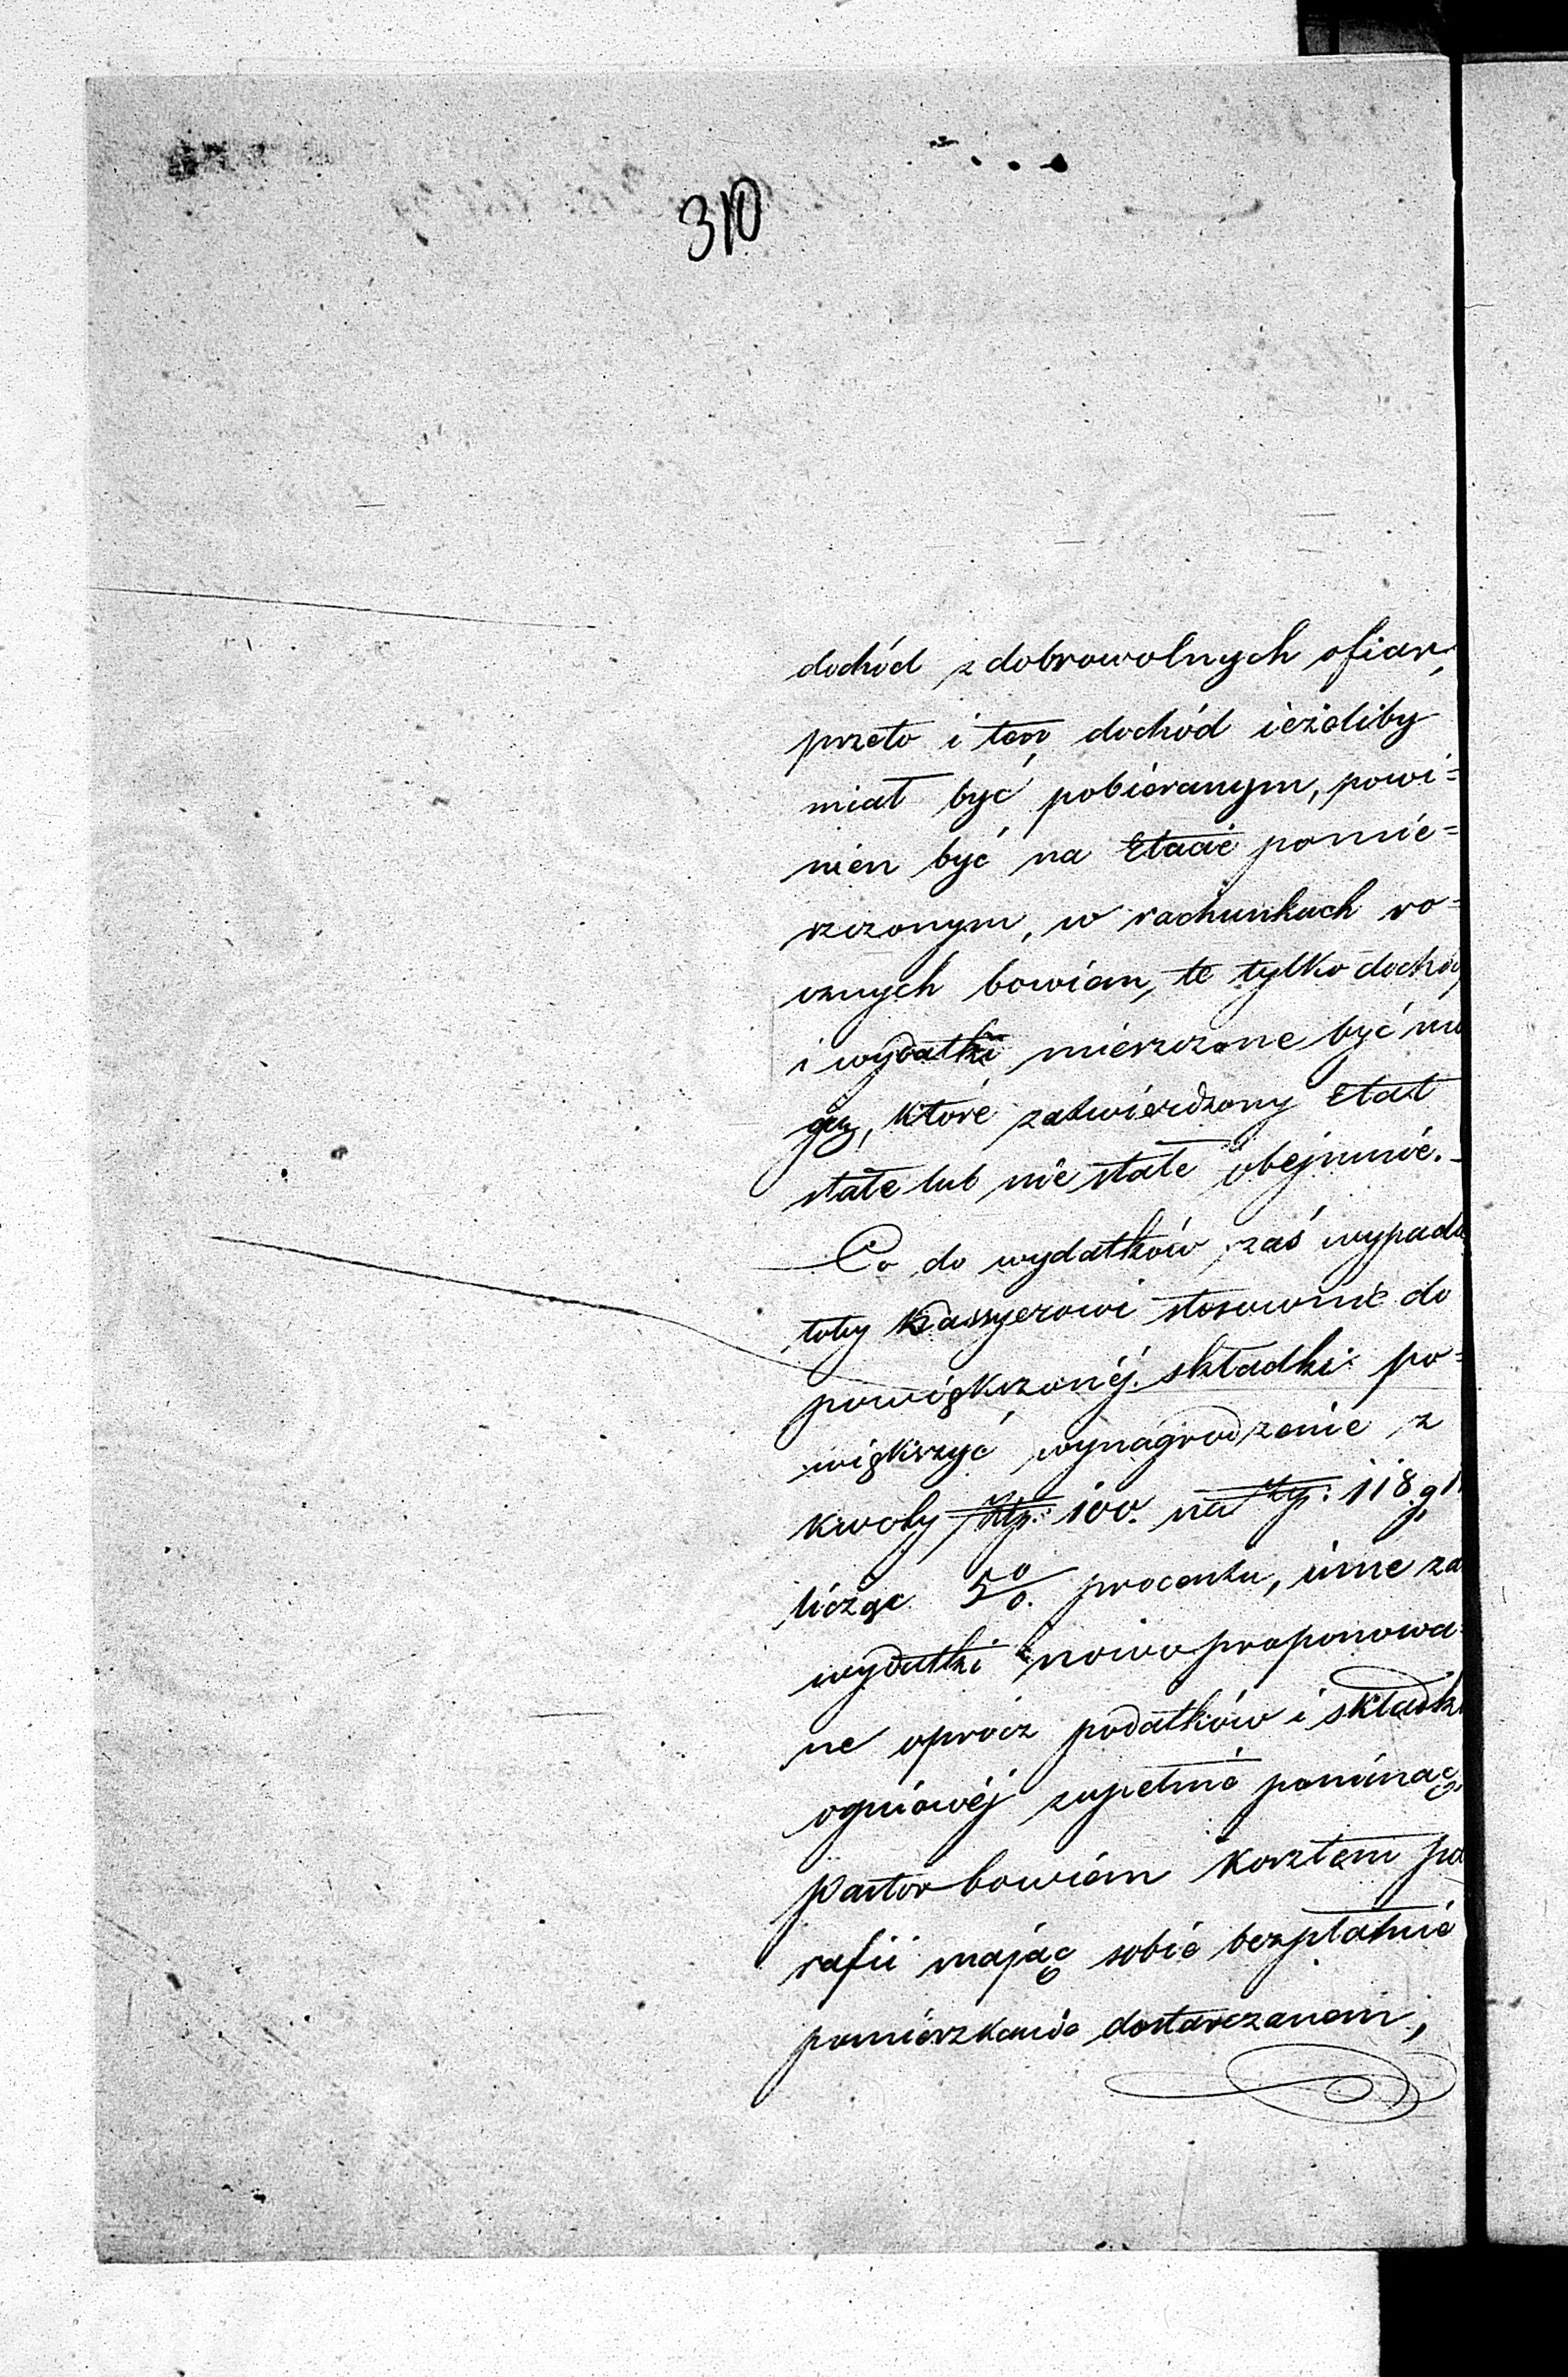 310
dochód z dobrowolnych ofiar,
przeto i ten dochód ieżeliby
miał być pobieranym, powi=
nien być na Etacie pomie=
szczonym, w rachunkach ro=
cznych bowiem, te tylko docho
i wydatki mieszczone być mo
gą, które zatwierdzony Etat
stałe lub nie stałe obejmuie.
Co do wydatków zaś wypada
łoby Kassyerowi stosownie do
powiększonéj składki po=
większyć wynagrodzenie z
kwoty Złp: 100. na Złp: 118 g
licząc 5 0/0. procentu, inne za
wydatki nowo proponowa
ne oprócz podatków i składk
ogniowéj zupełnie pominąć,
Pastor bowiem kosztem pa
rafii mając sobie bezpłatnie
pomieszkanie dostarczanem,